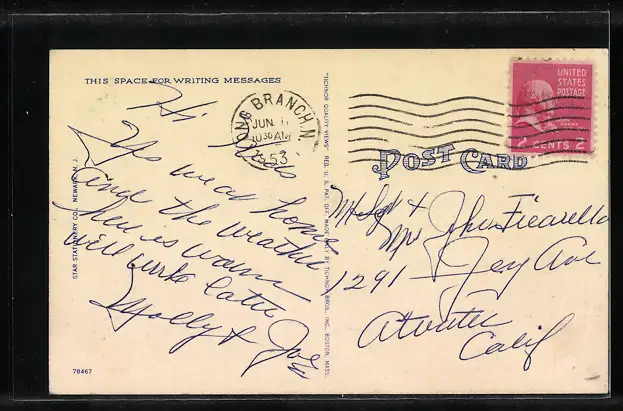 THIS SPACE FOR WRITING MESSAGES
Hi Kids
Yes were home
and the weather
here is warm
will write later
Molly & Joe
STAR STATIONERY CO., NEWARK, N. J.
78467
"TICHNOR QUALITY VIEWS" REG. U. S. PAT. OFF. MADE ONLY BY TICHNOR BROS., INC., BOSTON, MASS.
LONG BRANCH N.
JUN
10 30 AM
53
UNITED
STATES
POSTAGE
JOHN ADAMS
2 CENTS 2
POST CARD
M/Sgt &
Mrs John Ficarella
1291 Jey Ave
Atwater
Calif